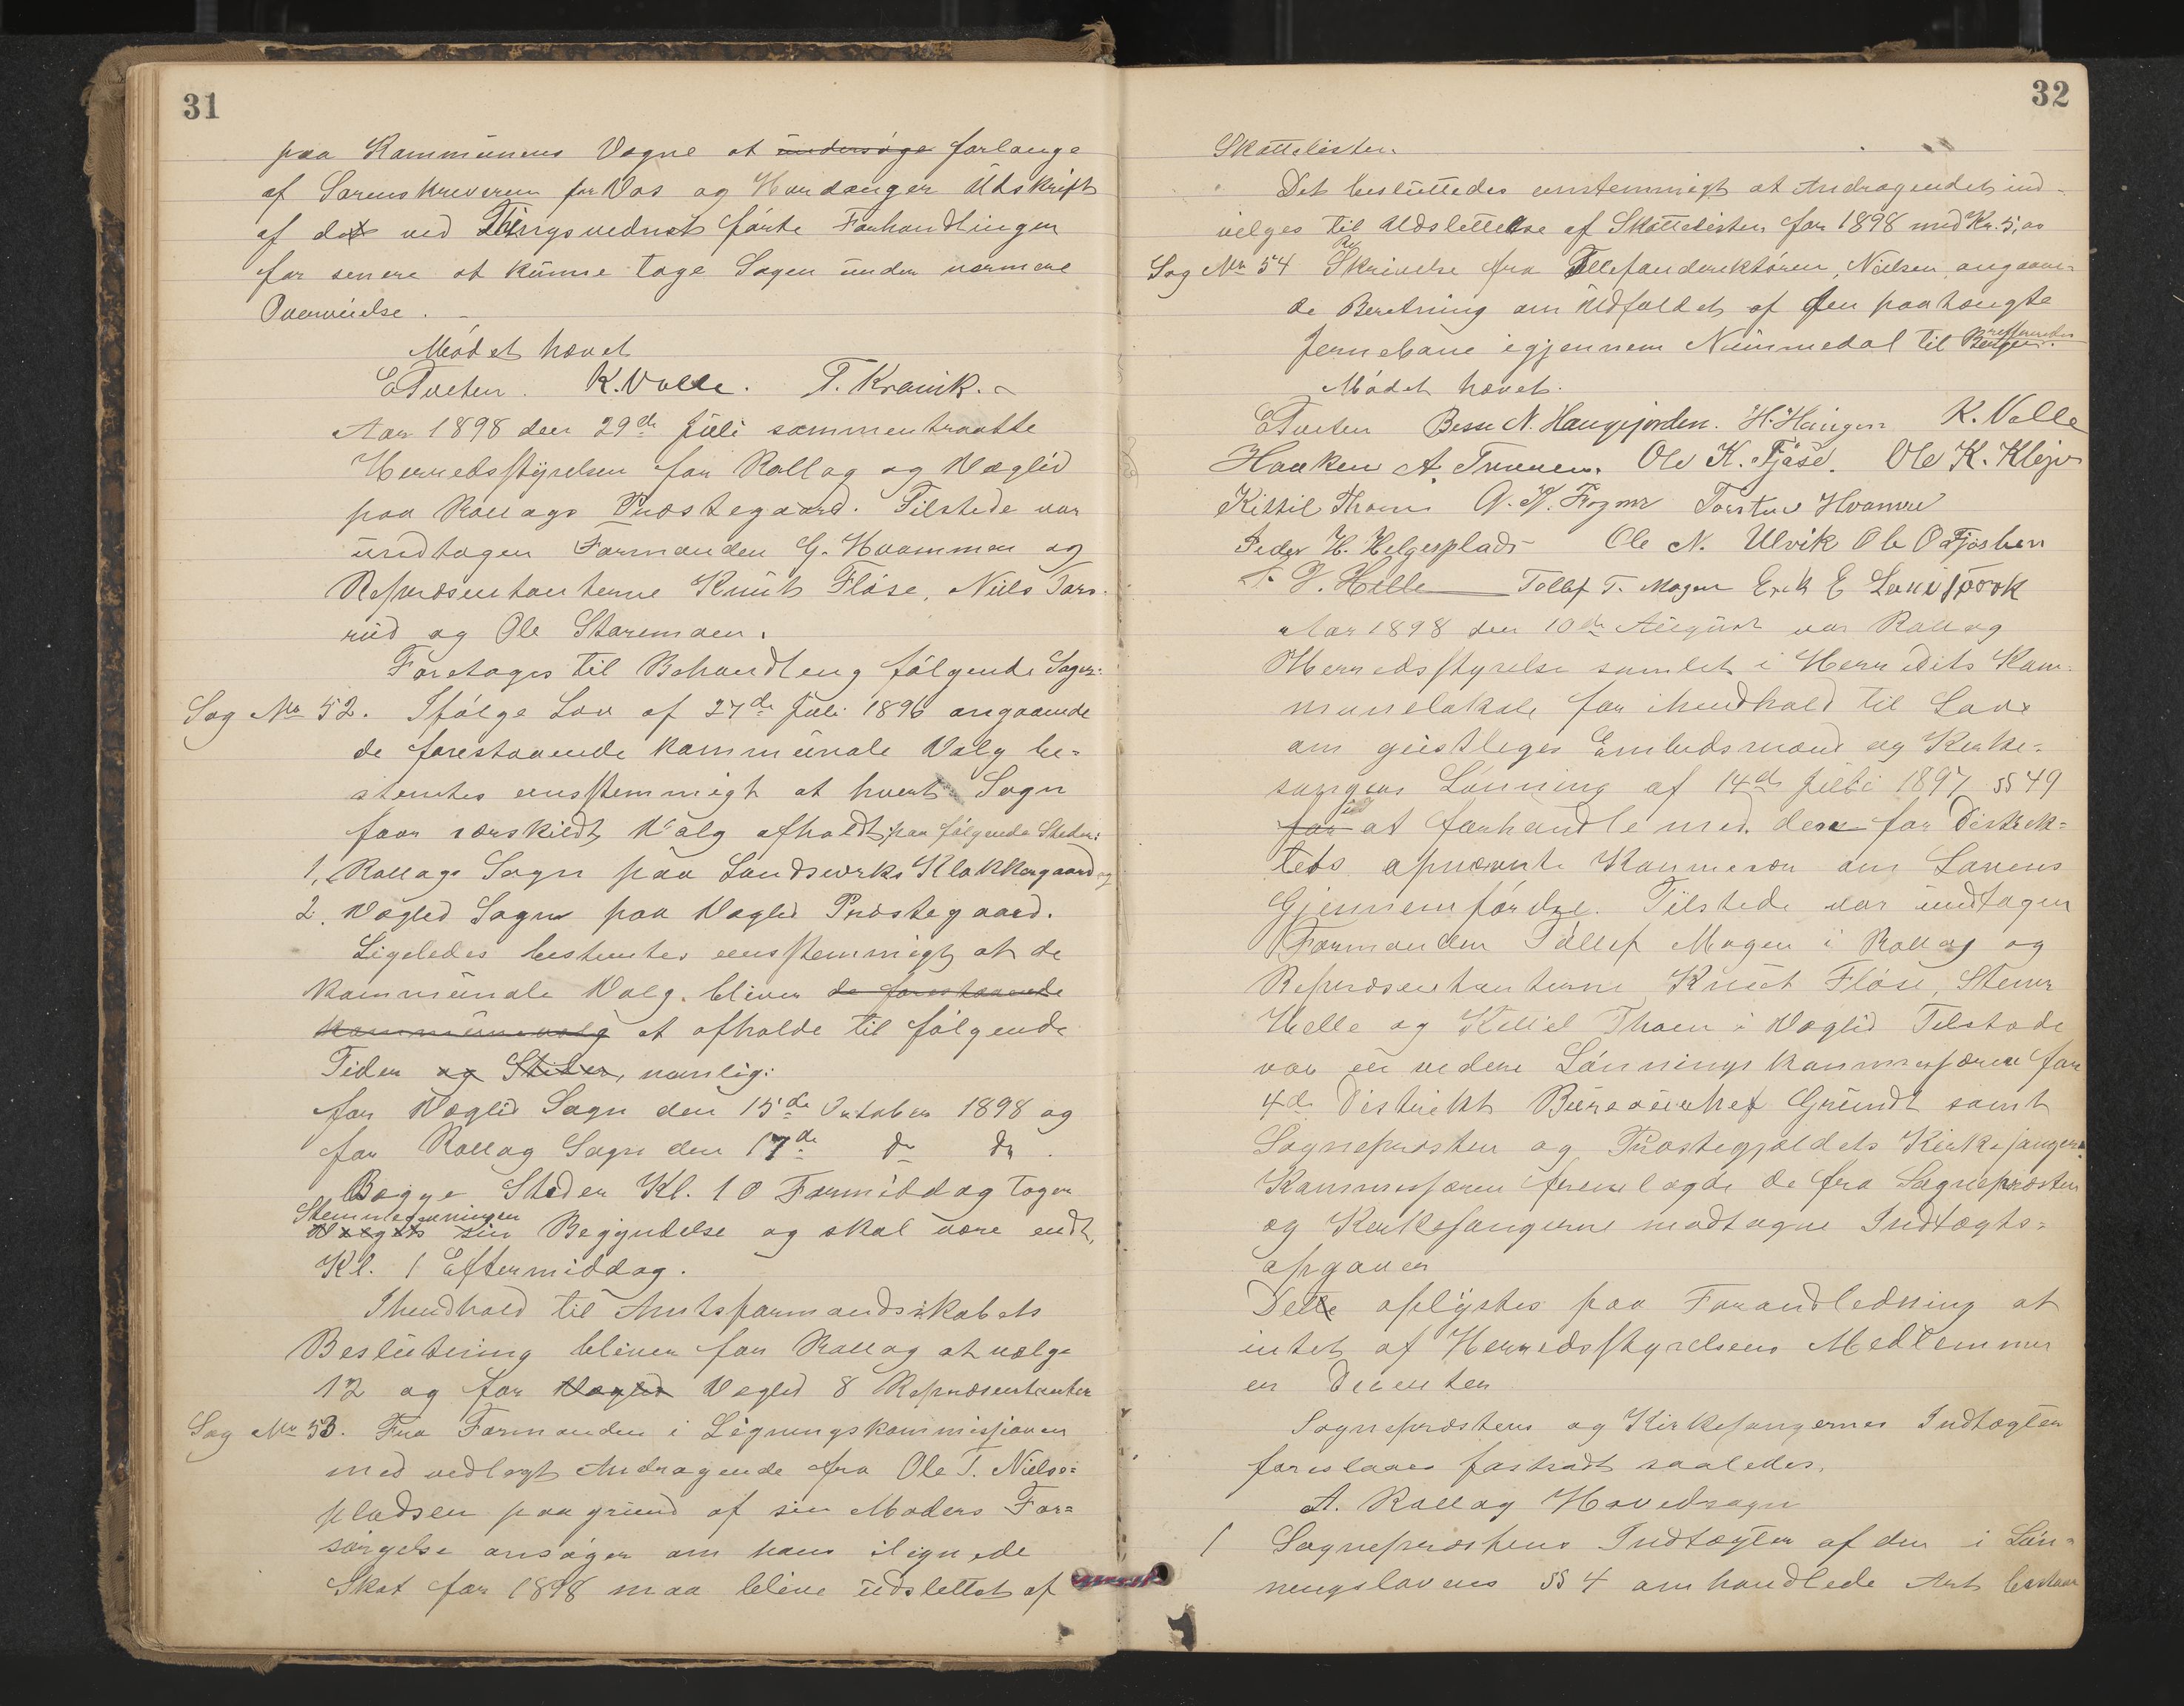 31
paa Kommunens Vegne at undersøge forlange
af Sorenskriveren for Vos og Hardanger Udskrift
af det ved Thingsvednet førte Forhandlinger
for senere at kunne tage Sagen under nærmere
Overveielse.
Mødet hævet
ETveten. K. Valle. T. Kravik.
Aar 1898 den 29de Juli sammentraatte
Herredsstyrelsen for Rollag og Væglid
paa Rollags Præstegaard. Tilstede var
undtagen Formanden G. Hvammen og
Repræsentanterne Knut Fløse, Niels Tors-
rud og Ole Staremoen.
Foretoges til Behandling følgende Sager:
Sag No 52. Ifølge Lov af 27de Juli 1896 angaaende
de forestaaende kommunale Valg be-
stemtes eensstemmigt at hvert Sogn
faar særskildt Valg afholdt paa følgende Steder:
1, Rollags Sogn paa Landsverks Klokkergaard og
2. Væglid Sogn paa Væglid Præstegaard.
Ligeledes bestemtes eensstemmigt at de
kommunale Valg. bliver de forestaaende
kommunevalg at afholde til følgende
Tider og Steder, nemlig:
for Væglid Sogn den 15de Oktober 1898 og
for Rollag Sogn den 17de do do.
Begge Steder Kl. 10 Formiddag tager
Stemmegivningen
Valgets sin Begyndelse og skal være endt,
Kl. 1 Eftermiddag.
Ihendhold til Amtsformandsskabets
Beslutning bliver for Rollag at vælge
12 og for Væglid Væglid 8 Repræsentanter
Sag No 53. Fra Formanden i Ligningskommissionen
med vedlagt Andragende fra Ole T. Nielse-
pladsen paa grund af sin Moders For-
sørgelse ansøger om hans ilignede
Skat for 1898 maa blive udslettet af
32
Skattelisten.
Det besluttedes enstemmigt at Andragendet ind-
vilges til Udslettelse af Skattelisten for 1898 med Kr. 5,00
Sag No 54 Skrivelse fra Tellefondirektøren, Nielsen, angaaen-
de Beretning om Udfaldet af den paatængte
Jernebane igjennem Nummedal til Bergen. refereredes
Mødet hævet.
ETveten Besse N. Haugejorden. H. Haugen K. Valle
Haaken A. Traaen. Ole K. Fjøse. Ole K. Klejv
Kittil Thoen Torsten Hvamen
Peder H. Helgesplads Ole N. Ulvik Ole O Fjøshen
S. G. Helle Tollef T. Mogen Erik E Landsværk
Aar 1898 den 10de August var Rollag
Herredsstyrelse samlet i Herredets Kom-
munelokale for ihendhold til Lov
om geistlige Embedsmænd og Kirke-
sangeres Lønning af 14de Juli 1897 §§ 49
for at forhandle med den for Distrik-
tets opnævnte Kommisær om Lovens
Gjennemførelse. Tilstede var undtagen
Formanden Tollef Mogen i Rollag og
Repræsentanterne Knut Fløse, Stener
Helle og Kittel Thoen i Væglid Tilstede
var videre Lønningskommissæren for
4de Distrikt Bureauchef Grundt samt
Sognepræsten og Præstegjældets Kirkesangere.
Kommissæren fremlagde de fra Sognepræsten
og Kirkesangerne modtagne Indtægts-
opgaver
Dette oplystes paa Forandledning at
intet af Herredsstyrelsens Medlemmer
er Dicenter
Sognepræstens og Kirkesangernes Indtægter
foreslaaes fastsadt saaledes.
A. Rollag Hovedsogn
1 Sognepræstens Indtægter af den i Løn-
ningslovens §§ 4 omhandlede Art bestaar